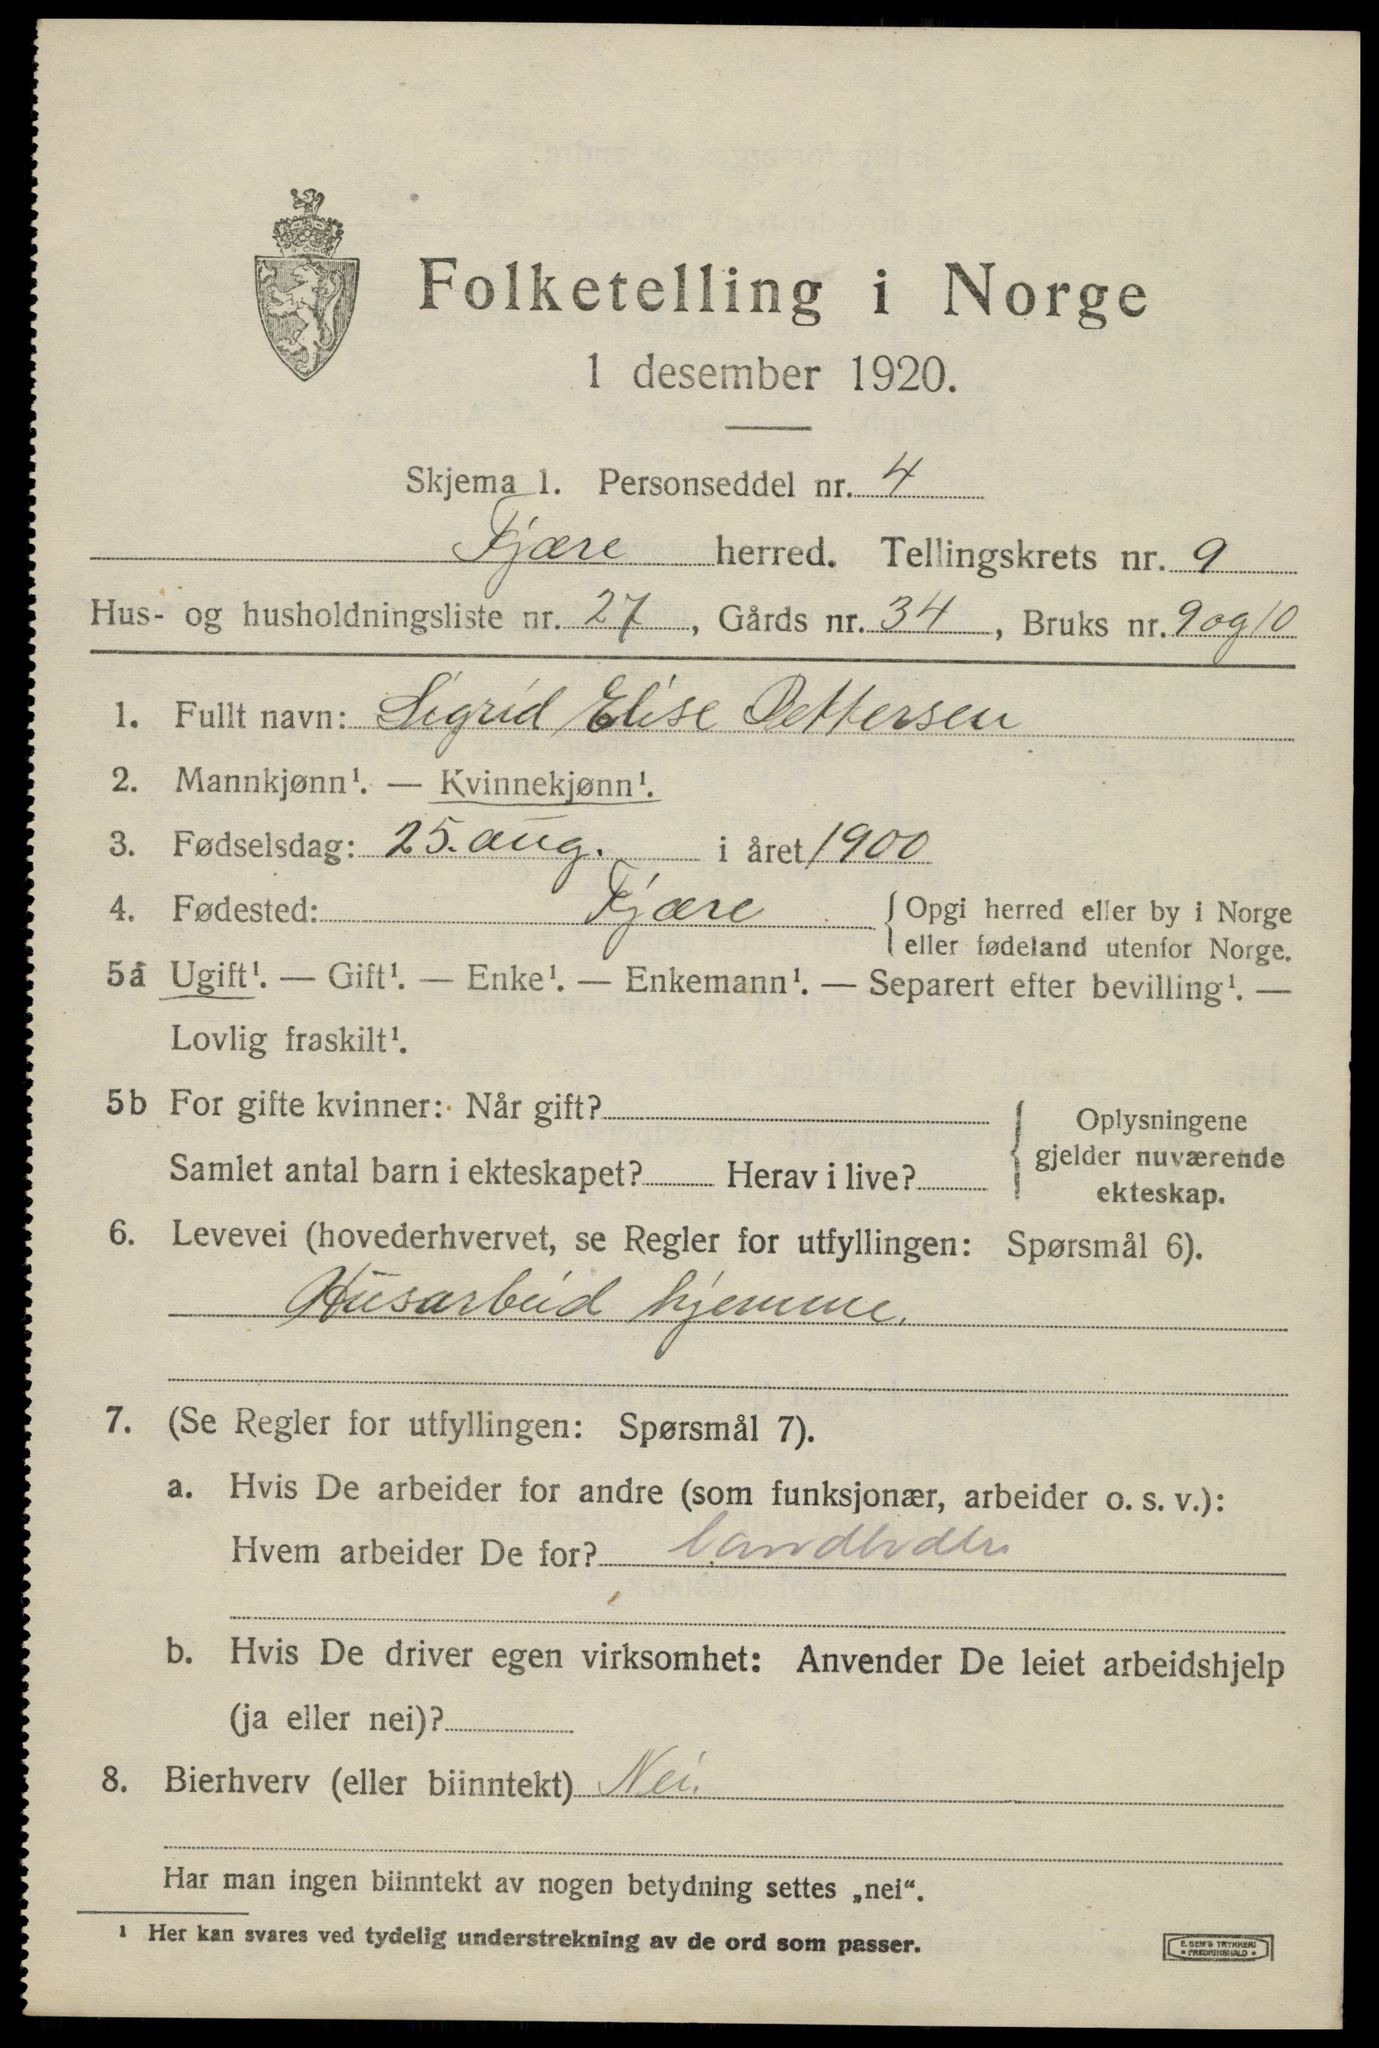 Folketelling i Norge
1 desember 1920.
Skjema 1. Personseddel nr. 4
Fjære herred. Tellingskrets nr. 9
Hus- og husholdningsliste nr. 27, Gårds nr. 34, Bruks nr. 9 og 10
1. Fullt navn: Sigrid Elise Pettersen
2. Mannkjønn¹. — Kvinnekjønn¹.
3. Fødselsdag: 25. aug. i året 1900
4. Fødested: Fjære { Opgi herred eller by i Norge
eller fødeland utenfor Norge.
5a Ugift¹. — Gift¹. — Enke¹. — Enkemann¹. — Separert efter bevilling¹. —
Lovlig fraskilt¹.
5b For gifte kvinner: Når gift?
Samlet antal barn i ekteskapet? Herav i live?
{ Oplysningene
gjelder nuværende
ekteskap.
6. Levevei (hovederhvervet, se Regler for utfyllingen: Spørsmål 6).
Husarbeid hjemme.
7. (Se Regler for utfyllingen: Spørsmål 7).
a. Hvis De arbeider for andre (som funksjonær, arbeider o. s. v.):
Hvem arbeider De for?
b. Hvis De driver egen virksomhet: Anvender De leiet arbeidshjelp
(ja eller nei)?
8. Bierhverv (eller biinntekt) Nei.
Har man ingen biinntekt av nogen betydning settes „nei“.
¹ Her kan svares ved tydelig understrekning av de ord som passer.
E. SEM'S TRYKKERI
FREDRIKSHALD